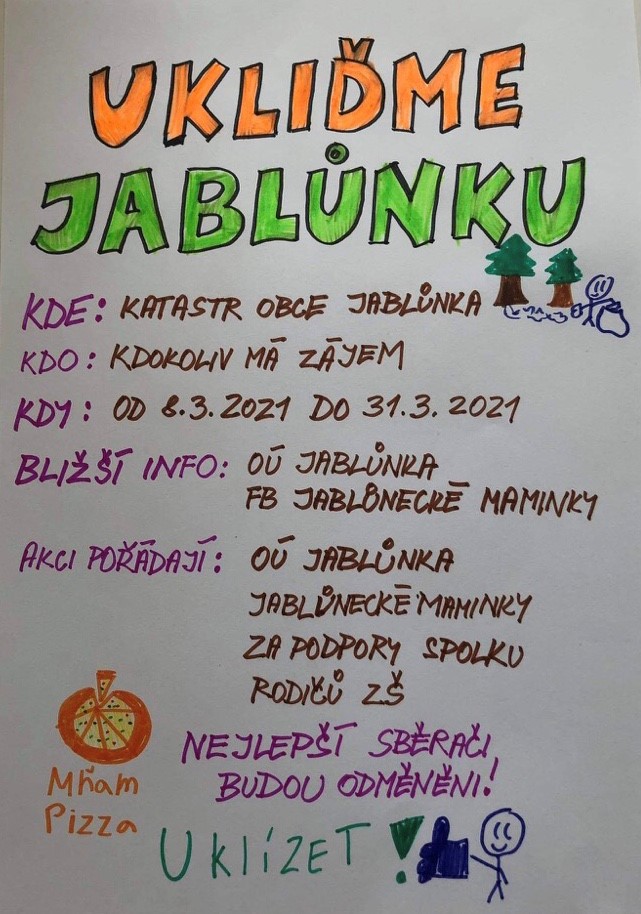 UKLIĎME
JABLŮNKU
KDE: KATASTR OBCE JABLŮNKA
KDO: KDOKOLIV MÁ ZÁJEM
KDY: OD 8.3.2021 DO 31.3.2021
BLIŽŠÍ INFO: OÚ JABLŮNKA
FB JABLŮNECKÉ MAMINKY
AKCI POŘÁDAJÍ: OÚ JABLŮNKA
JABLŮNECKÉ MAMINKY
ZA PODPORY SPOLKU
RODIČŮ ZŠ
NEJLEPŠÍ SBĚRAČI
BUDOU ODMĚNĚNI!
Mňam
Pizza
UKLÍZET!